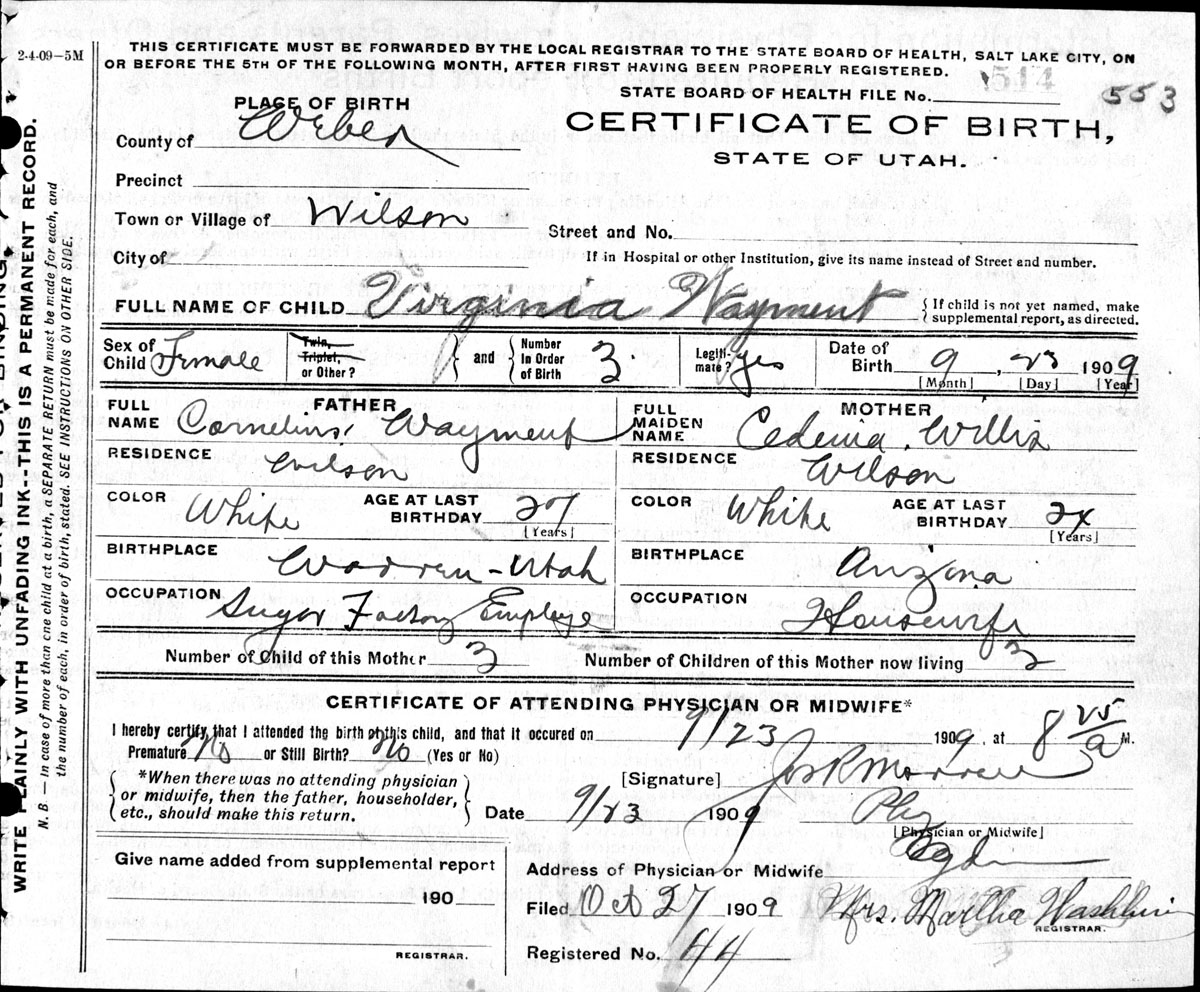 2-4-09-5M
THIS CERTIFICATE MUST BE FORWARDED BY THE LOCAL REGISTRAR TO THE STATE BOARD OF HEALTH, SALT LAKE CITY, ON
OR BEFORE THE 5TH OF THE FOLLOWING MONTH, AFTER FIRST HAVING BEEN PROPERLY REGISTERED.
STATE BOARD OF HEALTH FILE No. 514 553
PLACE OF BIRTH
County of Weber
CERTIFICATE OF BIRTH,
STATE OF UTAH.
Precinct
Town or Village of Wilson
Street and No.
City of
If in Hospital or other Institution, give its name instead of Street and number.
FULL NAME OF CHILD Virginia Wayment
{If child is not yet named, make
supplemental report, as directed.
Sex of Child Female
Twin, Triplet, or Other?
and
Number in Order of Birth 3
Legiti-mate? yes
Date of Birth 9, 23 1909
[Month] [Day] [Year]
FATHER
FULL NAME Cornelius Wayment
MOTHER
FULL MAIDEN NAME Cedenia Willis
RESIDENCE Wilson
RESIDENCE Wilson
COLOR White
AGE AT LAST BIRTHDAY 27
[Years]
COLOR White
AGE AT LAST BIRTHDAY 24
[Years]
BIRTHPLACE Warren-Utah
BIRTHPLACE Arizona
OCCUPATION Sugar Factory Employe
OCCUPATION Housewife
Number of Child of this Mother 3
Number of Children of this Mother now living 3
CERTIFICATE OF ATTENDING PHYSICIAN OR MIDWIFE*
I hereby certify that I attended the birth of this child, and that it occured on 9/23 1909, at 8 25/a M.
Premature No or Still Birth? No (Yes or No)
*When there was no attending physician
or midwife, then the father, householder,
etc., should make this return.
[Signature] Jos R Morrell
Date 9/23 1909
Phy
[Physician or Midwife]
Address of Physician or Midwife Ogden
Give name added from supplemental report
190
REGISTRAR.
Filed Oct 27 1909 Mrs. Martha Washburn
REGISTRAR.
Registered No. 44
WRITE PLAINLY WITH UNFADING INK--THIS IS A PERMANENT RECORD.
N. B. — In case of more than one child at a birth, a SEPARATE RETURN must be made for each, and
the number of each, in order of birth, stated. SEE INSTRUCTIONS ON OTHER SIDE.